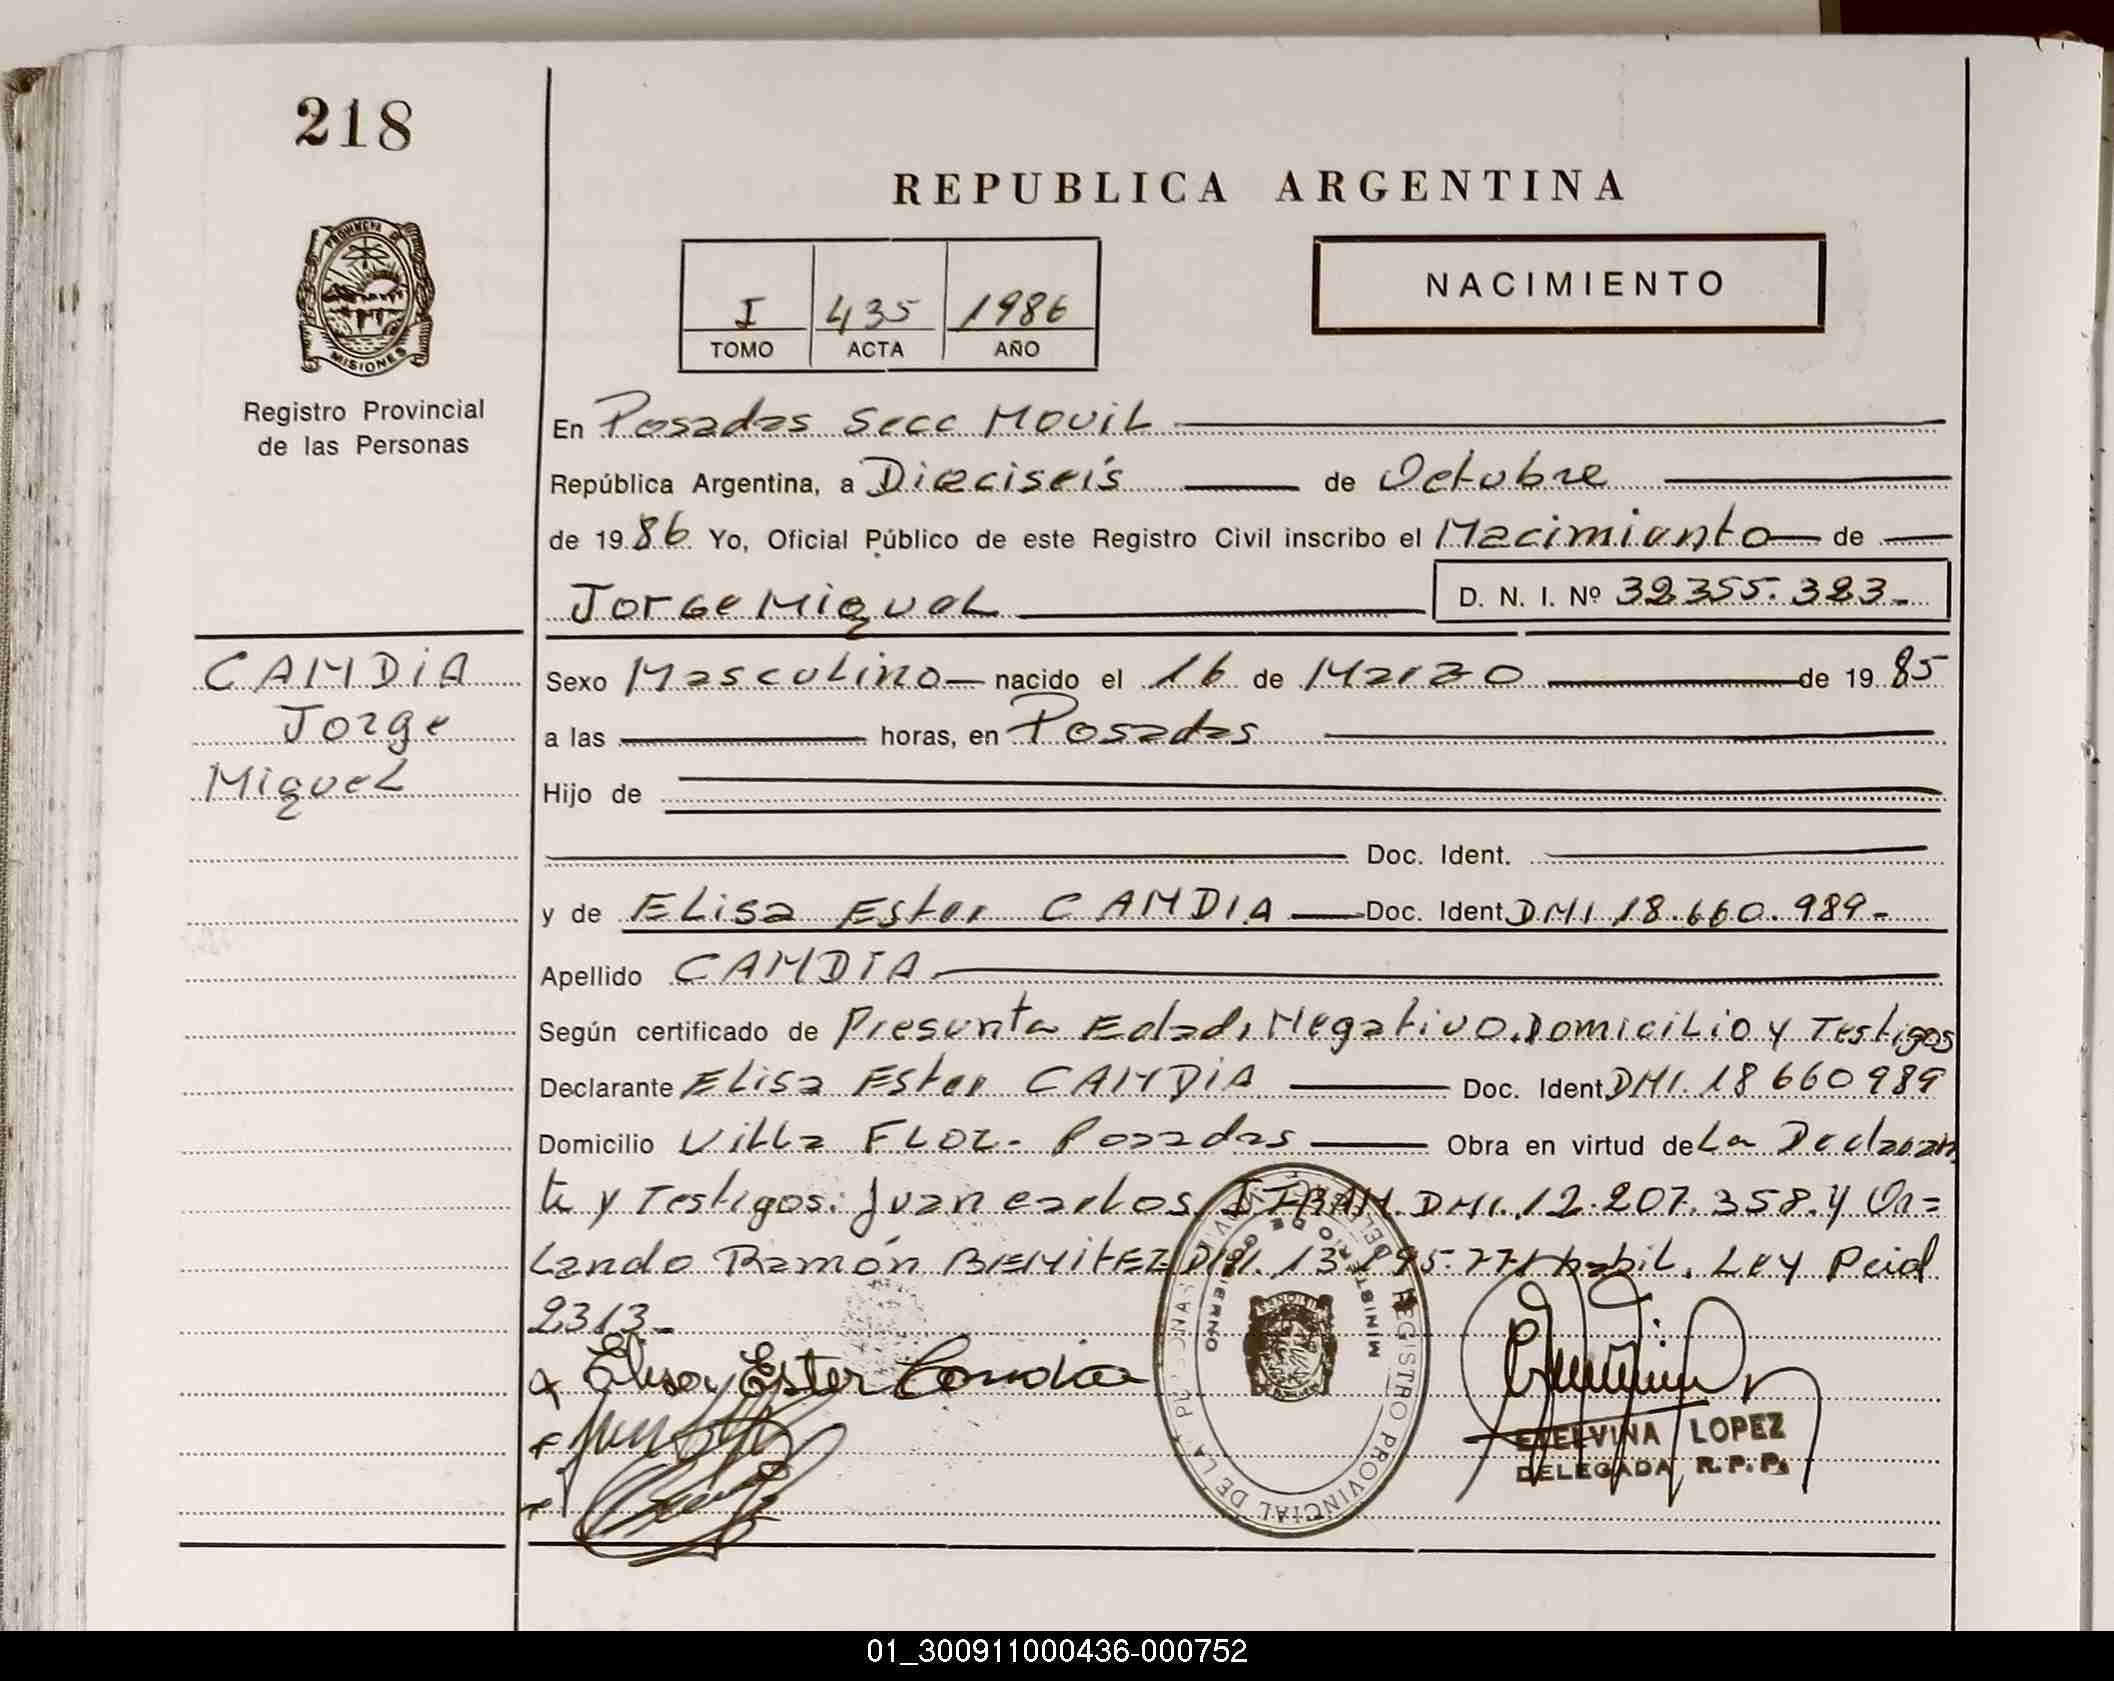 218
REPUBLICA ARGENTINA
PROVINCIA DE
MISIONES
Registro Provincial
de las Personas
I 435 1986
TOMO ACTA AÑO
NACIMIENTO
En Posadas Secc Movil
República Argentina, a Dieciseis de Octubre
de 1986 Yo, Oficial Público de este Registro Civil inscribo el Nacimiento de
Jorge Miguel D. N. I. Nº 32.355.323.-
CANDIA
Jorge
Miguel
Sexo Masculino nacido el 16 de Marzo de 1985
a las horas, en Posadas
Hijo de
Doc. Ident.
y de Elisa Ester CANDIA Doc. Ident DNI 18.660.989-
Apellido CANDIA
Según certificado de Presunta Edad, Negativo, Domicilio y Testigos
Declarante Elisa Ester CANDIA Doc. Ident DNI. 18660989
Domicilio Villa Flor- Posadas Obra en virtud de La Declaran
te y Testigos: Juan Carlos DNI. 12.207.358. y Or=
lando Ramón BENITEZ DNI. habil. Ley Pcial
2313-
Elisa Ester Candia
REGISTRO PROVINCIAL DE LAS PERSONAS
MINISTERIO DE GOBIERNO
ETELVINA LOPEZ
DELEGADA R.P.P.
01_300911000436-000752